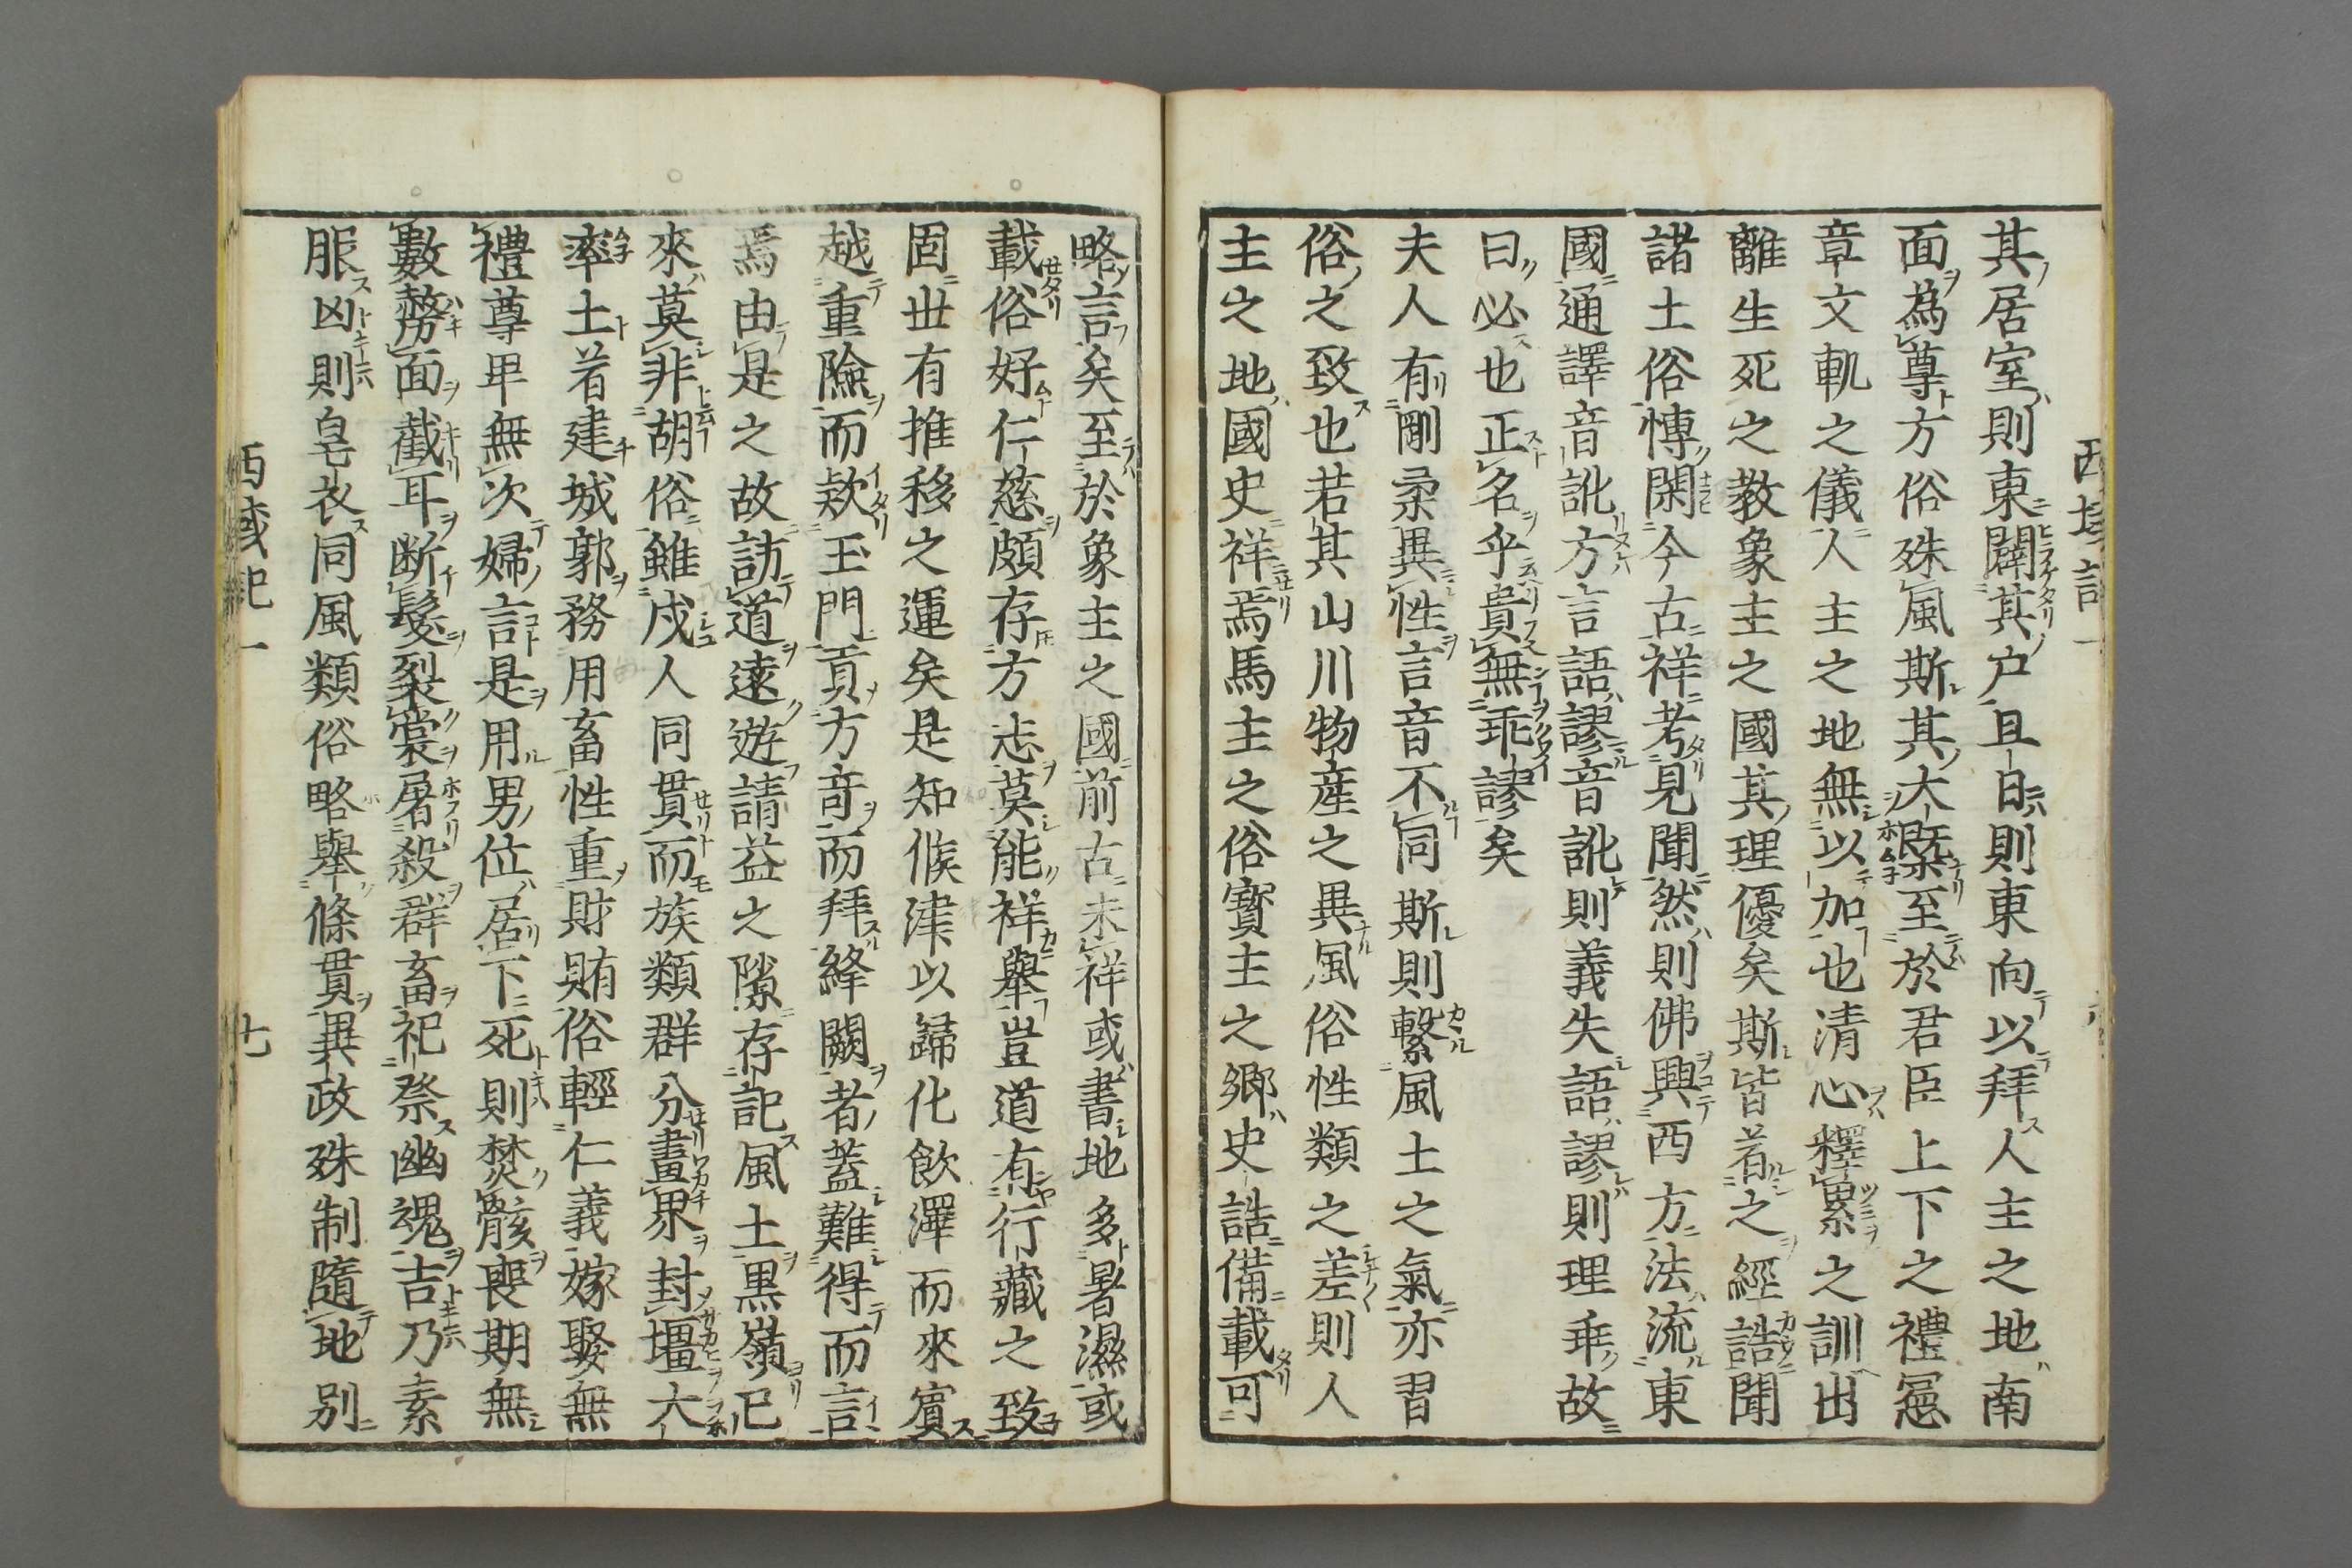 西域記一
其居室則東闢其户旦日則東向以拜人主之地南
面為尊方俗殊風斯其大槩至於君臣上下之禮冤
章文軌之儀人主之地無以加也清心釋累之訓出
離生死之教象主之國其理優矣斯皆著之經誥聞
諸土俗愽閑今古祥考見聞然則佛興西方法流東
國通譯音訛方言語謬音訛則義失語謬則理乖故
曰必也正名乎貴無乖謬矣
夫人有剛柔異性言音不同斯則繋風土之氣亦習
俗之致也若其山川物産之異風俗性類之差則人
主之地國史祥焉馬主之俗寳主之郷史誥備載可
略言矣至於象主之國前古未祥或書地多暑濕或
載俗好仁慈頗存方志莫能祥舉豈道有行藏之致
固世有推移之運矣是知候津以歸化飲澤而來賓
越重險而欵玉門貢方竒而拜絳闕者蓋難得而言
焉由是之故訪道遠遊請益之隙存記風土黒嶺已
來莫非胡俗雖戍人同貫而族類群分畫界封壃大
率土著建城郭務用畜性重財賄俗輕仁義嫁娶無
禮尊卑無次婦言是用男位居下死則焚骸喪期無
數剺面截耳断髮裂裳屠殺群畜祀祭幽魂吉乃素
服凶則皂衣同風類俗略舉條貫異政殊制隨地別
西域記一
七